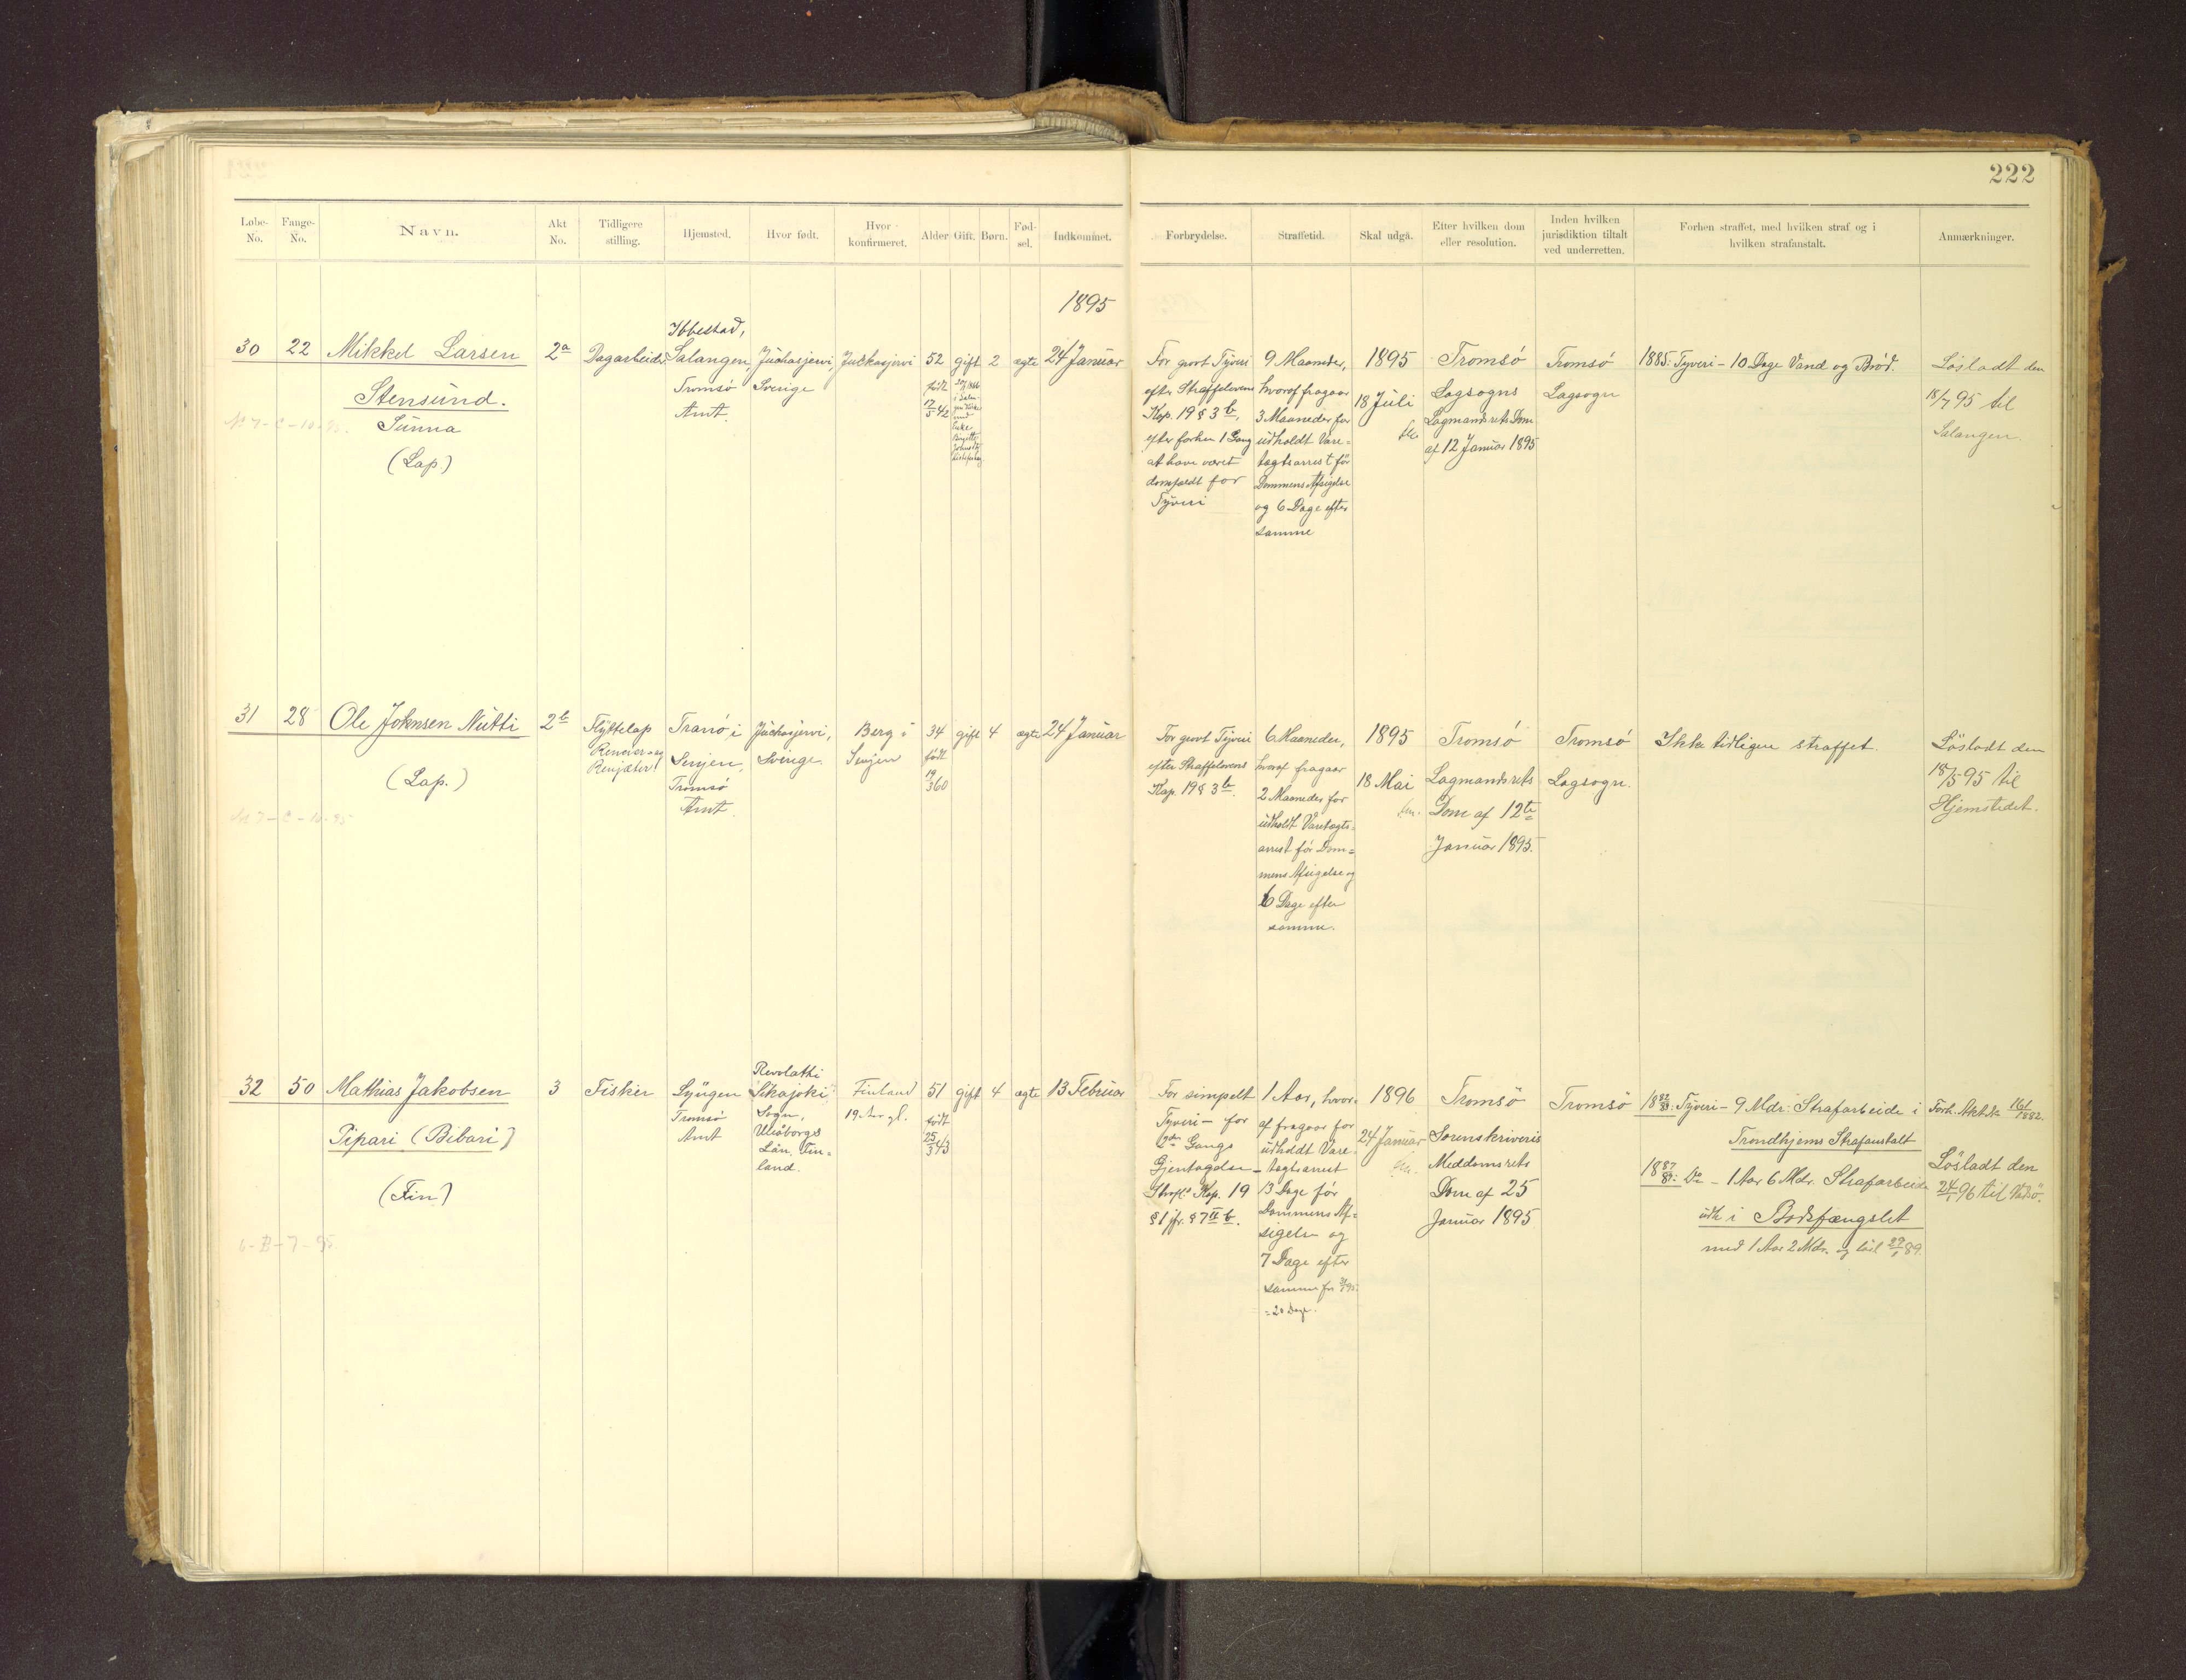 222
Løbe-No.
Fange-No.
Navn.
Akt No.
Tidligere stilling.
Hjemsted.
Hvor født.
Hvor konfirmeret.
Alder
Gift.
Børn.
Fød-sel.
Indkommet.
Forbrydelse.
Straffetid.
Skal udgå.
Efter hvilken dom
eller resolution.
Inden hvilken
jurisdiktion tiltalt
ved underretten.
Forhen straffet, med hvilken straf og i
hvilken strafanstalt.
Anmærkninger.
1895
30
22
Mikkel Larsen
Stensund.
Sunna
(Lap.)
2a
Dagarbeider
Ibbestad,
Salangen,
Tromsö
Amt.
Juckasjervi,
Sverige
Juckasjervi
52
født
17/5 42
gift
2
ægte
24 Januar
For grovt Tyveri
efter Straffelovens
Kap. 19 § 3 b,
efter forhen 1 Gang
at have været
domfældt for
Tyveri
9 Maaneder,
hvoraf fragaar
3 Maaneder for
udholdt Vare=
tægtsarrest før
Dommens Afsigelse
og 6 Dage efter
samme
1895
18 Juli
Tromsö
Lagsogns
Lagmandsrets Dom
af 12 Januar 1895
Tromsö
Lagsogn
1885. Tyveri - 10 Dage Vand og Brød.
Løsladt den
18/7 95 til
Salangen.
31
28
Ole Johnsen Nutti
(Lap.)
No 7 - C - 10 - 95
2b
Flyttelap
Reneier og
Rengjæter!
Tranö i
Senjen,
Tromsö
Amt.
Juckasjervi,
Sverige.
Berg i
Senjen
34
født
19/3 60
gift
4
ægte
24 Januar
For grovt Tyveri
efter Straffelovens
Kap. 19 § 3 b.
6 Maaneder,
hvoraf fragaar
2 Maaneder for
udholdt Varetægts=
arrest før Dom=
mens Afsigelse og
6 Dage efter
samme.
1895
18 Mai
fm.
Tromsö
Lagmandsrets
Dom af 12te
Januar 1895.
Tromsö
Lagsogn.
Ikke tidligere straffet.
Løsladt den
18/5 95 til
Hjemstedet.
32
50
Mathias Jakobsen
Pipari (Bibari)
(Fin)
6 - B - 7 - 95
3
Fisker
Lyngen
Tromsö
Amt
Revolathi
Sikajoki
Sogn,
Uleåborgs
Län. Fin=
land.
Finland
19 Aar gl.
51
født
25/3 43
gift
4
ægte
13 Februar
For simpelt
Tyveri - for
Gangs
Gjentagelse -
Strfl. Kap. 19
§ 1 jfr. § 7 II b.
1 Aar, hvor=
af fragaar for
udholdt Vare=
tægtsarrest
13 Dage før
Dommens Af=
sigelse og
7 Dage efter
samme
= 20 Dage.
1896
24 Januar
fm.
Tromsö
Sorenskriveris
Meddomsrets
Dom af 25
Januar 1895
Tromsö
18 82/83: Tyveri - 9 Mdr. Strafarbeide i
Trondhjems Strafanstalt
18 87/89: Do - 1 Aar 6 Mdr. Strafarbeide
udh i Bodsfængslet
med 1 Aar 2 Mdr. og løsl 29/1 89.
Forh. Akt No 161/1882.
Løsladt den
24/1 96 til Vadsö.